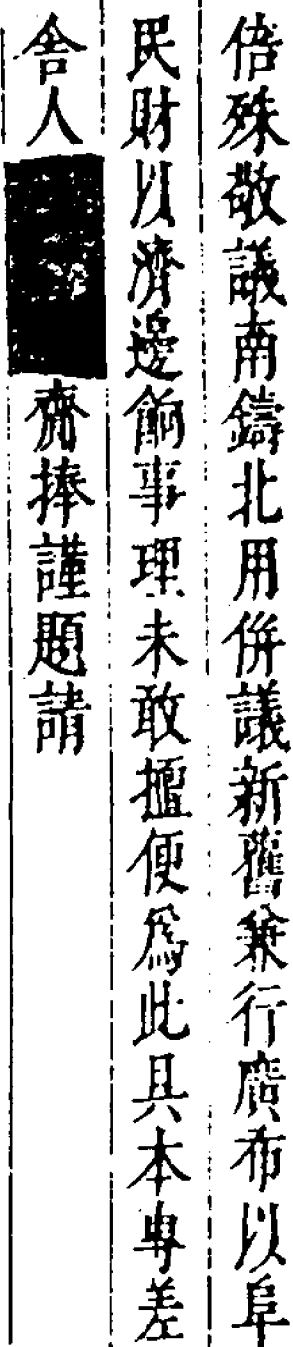 倍殊敬議南鑄北用併議新舊兼行廣布以阜
民財以濟邊餉事理未敢擅便爲此具本專差
舍人
齎捧謹題請